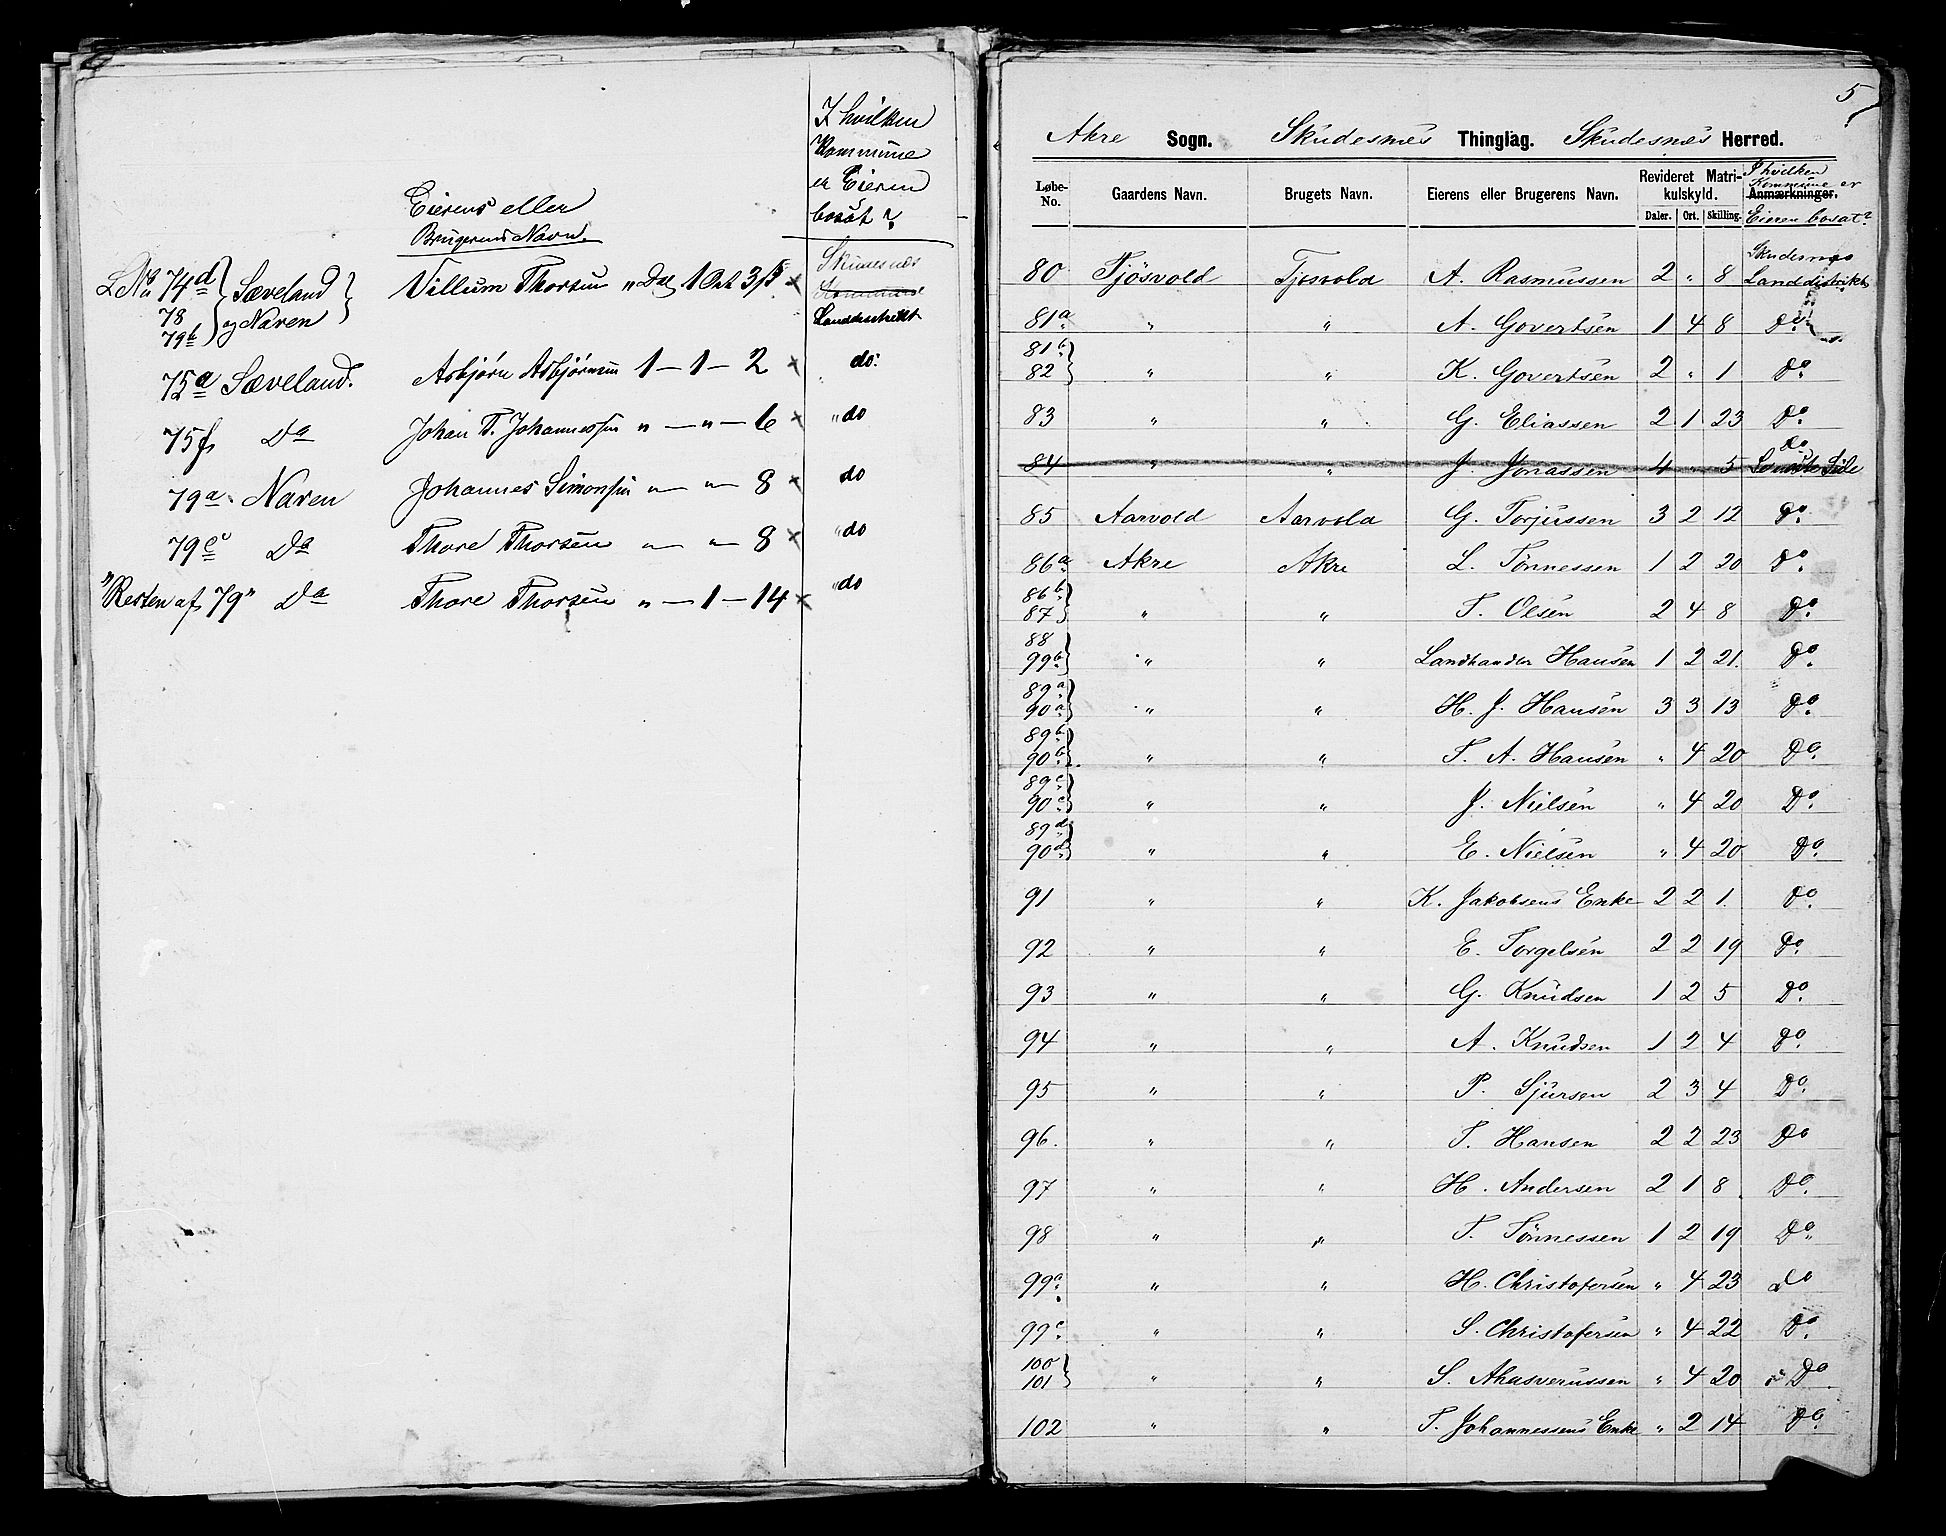 I hvilken
Kommune
er Eieren
bosat?
Eierens eller
Brugerens Navn.
LNo 74d Sæveland Villum Thorsen " Dal 1 Ort 3 ß × Skudesnæs
78 Kommune
79b og Naven Landdistrikt
75a Sæveland. Asbjørn Asbjørnsen 1 — 1 — 2 × do.
75f Do Johan T. Johannessen " — " — 6 × " do
79a Naven Johannes Simonsen " — " — 8 × do
79c Do Thore Thorsen " — " — 8 × " do
"Resten af 79" Do Thore Thorsen " — 1 — 14 × " do
5
Akre Sogn. Skudesnes Thinglag. Skudesnæs Herred.
Løbe-No. Gaardens Navn. Brugets Navn. Eierens eller Brugerens Navn. Revideret Matrikulskyld. Anmærkninger. I hvilken Kommune er Eieren bosat?
Daler. Ort. Skilling.
80 Tjösvold Tjosvold A. Rasmussen 2 " 8 Skudesnæs Landdistrikt
81a " " A. Govertsen 1 4 8 Do.
81b
82 " " K. Govertsen 2 " 1 Do
83 " " G. Eliassen 2 1 23 Do.
84 " " J. Jonassen 4 " 5 do Side
85 Aarvold Aarvold G. Torjussen 3 2 12 Do.
86a Akre Akre L. Tönnessen 1 2 20 Do
86b
87 " " T. Olsen 2 4 8 Do.
88
99b " " Landhandler Hansen 1 2 21. Do.
89a
90a " " H. J. Hansen 3 3 13 Do.
89b
90b " " T. A. Hansen " 4 20 Do.
89c
90c " " J. Nielsen " 4 20 Do.
89d
90d " " E. Nielsen " 4 20 Do.
91 " " K. Jakobsens Enke 2 2 1. Do.
92 " " E. Torgelsen 2 2 19 Do.
93 " " G. Knudsen 1 2 5 Do.
94 " " A. Knudsen 1 2 4 Do.
95 " " P. Sjursen 2 3 4 Do.
96. " " T. Hansen 2 2 23 Do
97 " " H. Andersen 2 1 8 Do.
98 " " T. Tönnessen 1 2 19 Do.
99a " " H. Christofersen " 4 23 do
99c " " S. Christofersen " 4 22 Do.
100
101 " " S. Ahasverussen " 4 20 Do
102 " " T. Johannessens Enke " 2 14 Do.